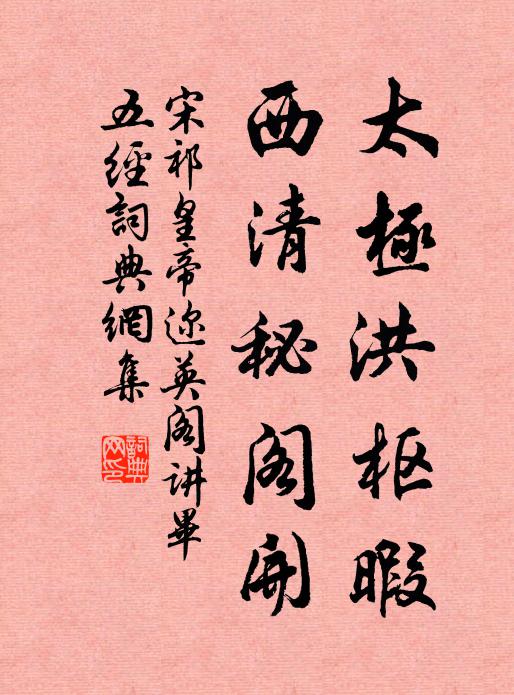 太極洪枢暇
西清秘阁開
宋祁皇帝迩英阁讲畢
五經詞典網集
詞典网印